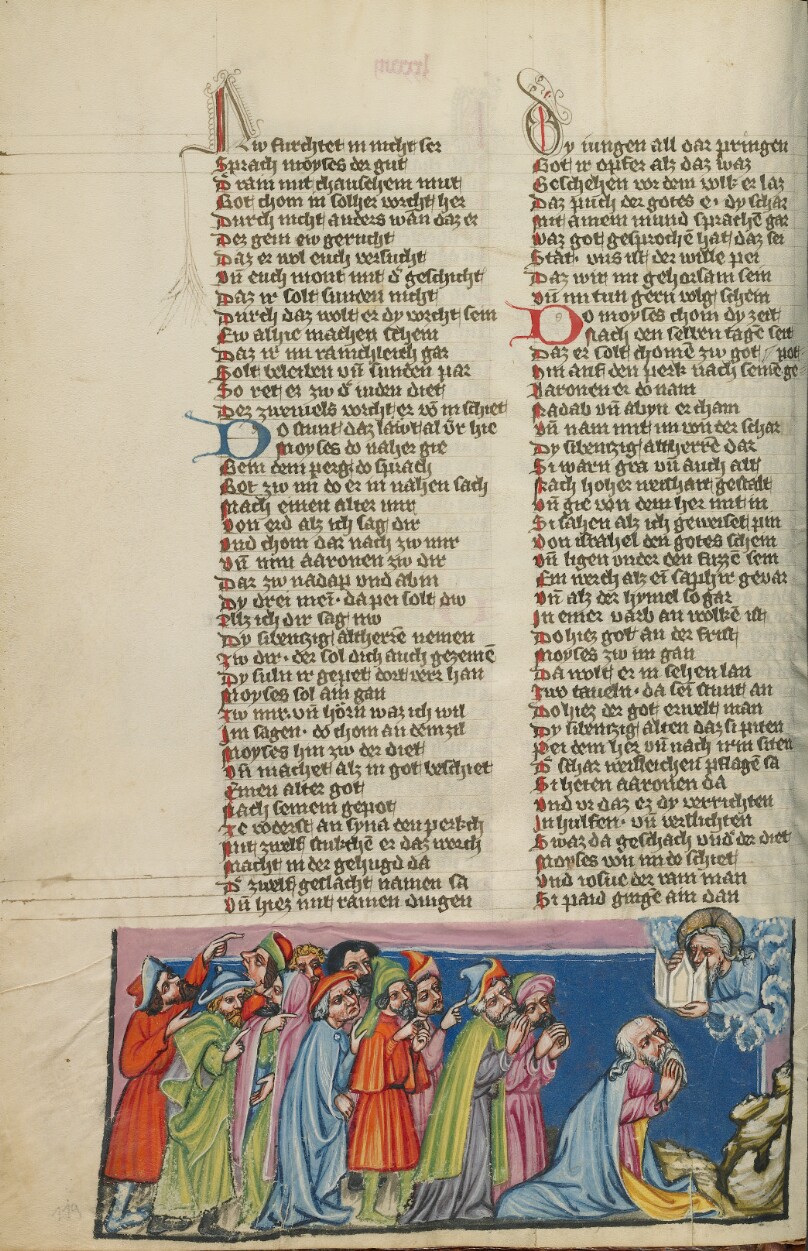 Nw furchtet in nicht ser
Sprach moyses der gut
D ram mit chauschem mut
Got chom in solher vorcht her
Durch nicht anders wan daz er
Dez gern ew gerucht
Daz er wol euch versucht
Vn̄ euch mont mit d᾽ geschicht
Daz ir solt sunden nicht
Durch daz wolt er dy vorcht sein
Ew alhie machen schein
Daz ir im rainchleich gar
Solt beleiben vn̄ sunden par
So ret er zw d᾽ iuden diet
Dez zweiuels vorcht er vō in schiet
Do stunt daz lawt al v̄r hie
Moyses do naher gie
Gein dem perg do sprach
Got zw im do er in nahen sach
Mach einen alter mir
Von erd als ich sag dir
Vnd chom dar nach zw mir
Vn̄ nim aaronen zw dir
Dar zw nadap vnd abiu
Dy drei mei᾽ da pei solt dw
Alz ich dir sag nw
Dy sibenzig altherrē nemen
Zw dir der sol dich auch gezemē
Dy suln ir gepet dort verr han
Moyses sol ain gan
Zw mir vn̄ hörn waz ich wil
Im sagen do chom an dem zil
Moyses hin zw der diet
Vn̄ machet alz in got beschiet
Einen alter got
Nach seinem gepot
Ze vöderst an syna den perkch
Mit zwelf stukchē er daz werch
Macht in der gehugd da
D᾽ zwelf geslacht namen sa
Vn̄ hiez mit rainen dingen
Dy iungen all dar pringen
Got ir opfer alz daz waz
Geschehen vor dem volk er laz
Daz puch der gotes e dy schar
Mit ainem mund sprachē gar
Waz got gesprochē hat daz sei
Stat vns ist der wille pei
Daz wir im gehorsam sein
Vn̄ im tun gern volg schein
Do moyses chom dy zeit
Nach den selben tagē seit
Daz er solt chomē zw got
Hin auf den perk nach seinē ge pot
Aaronen er do nam
Nadab vn̄ abyu er cham
Vn̄ nam mit im von der schar
Dy sibenzig altherrē dar
Si warn gra vn̄ auch alt
Nach hoher
Vn̄ gie von dem her mit in
Si sahen alz ich geweiset pin
Von israhel den gotes schein
Vn̄ ligen vnder den fuzzē sein
Ein werch alz ei᾽ saphir gevar
Vn̄ alz der hymel so gar
In einer varb an wolkē ist
Do hiez got an der frist
Moyses zw im gan
Da wolt er in sehen lan
Zwo taueln da sei᾽ stunt an
Do hiez der got erwelt man
Dy sibenzig alten daz si piten
Pei dem her vn̄ nach irm siten
D᾽ schar weisleichen pflagē sa
Si heten aaronen da
Vnd vr daz ez dy verrichten
In hulfen vn̄ verslichten
Swaz da geschach vnd᾽ der diet
Moyses von in do schiet
Vnd iosue der rain man
Si paid gingē ain dan